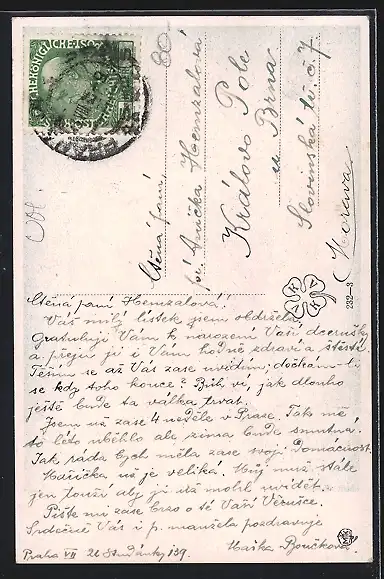 80
Ctěná paní,
pí Anička Hemzalová
Královo Pole
u Brna
Slovinská tř. č. 7
Morava
232-3
Ctěná paní Hemzalová!
Váš milý lístek jsem obdržela.
Gratuluji Vám k narození Vaší dcerušky
a přeju jí i Vám hodně zdraví a štěstí.
Těším se až Vás zase uvidím; dočkám-li
se kdy toho konce? Bůh ví, jak dlouho
ještě bude ta válka trvat.
Jsem už zase 4 neděle v Praze. Tak mě
to léto uběhlo ale zima bude smutná.
Tak ráda bych měla zase svoji Domácnost.
už je veliká. Můj muž stále
jen touží aby ji už mohl uvidět.
Pište mi zase brzo o té Vaší Věrušce.
Srdečně Vás i p. manžela pozdravuje
Praha VII
Boučková